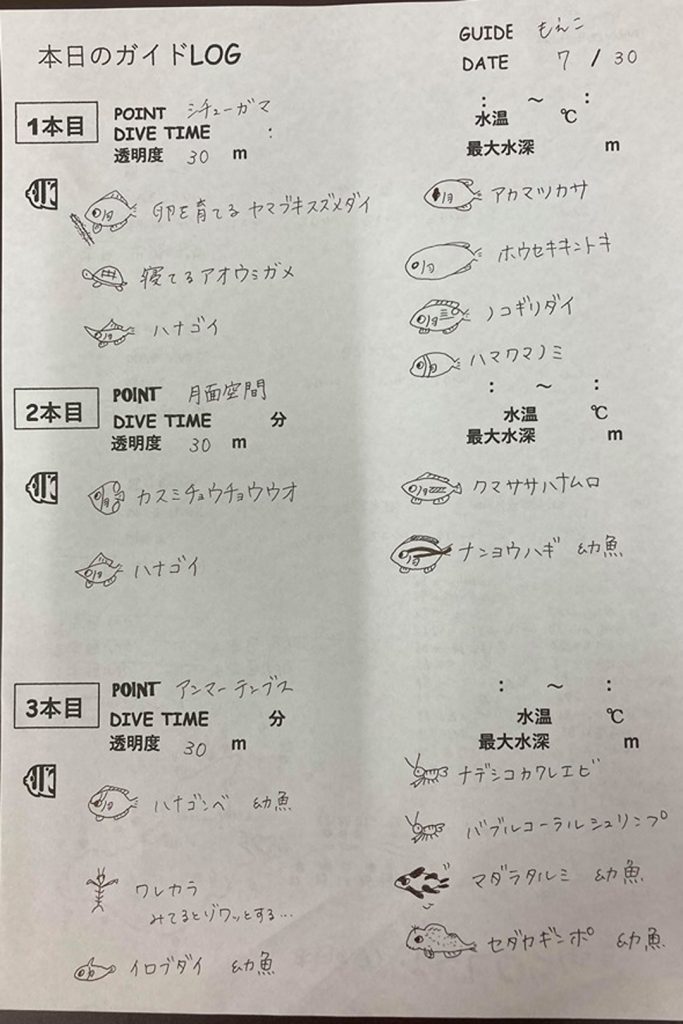 本日のガイドLOG
GUIDE もえこ
DATE 7 / 30
1本目
POINT シチューガマ
DIVE TIME :
透明度 30 m
: ～ :
水温 ℃
最大水深 m
卵を育てる ヤマブキスズメダイ
寝てるアオウミガメ
ハナゴイ
アカマツカサ
ホウセキキントキ
ノコギリダイ
ハマクマノミ
2本目
POINT 月面空間
DIVE TIME 分
透明度 30 m
: ～ :
水温 ℃
最大水深 m
カスミチョウチョウウオ
ハナゴイ
クマササハナムロ
ナンヨウハギ 幼魚
3本目
POINT アンマーテンブス
DIVE TIME 分
透明度 30 m
: ～ :
水温 ℃
最大水深 m
ハナゴンベ 幼魚
ワレカラ
みてるとゾワッとする...
イロブダイ 幼魚
ナデシコカクレエビ
バブルコーラルシュリンプ
マダラタルミ 幼魚
セダカギンポ 幼魚